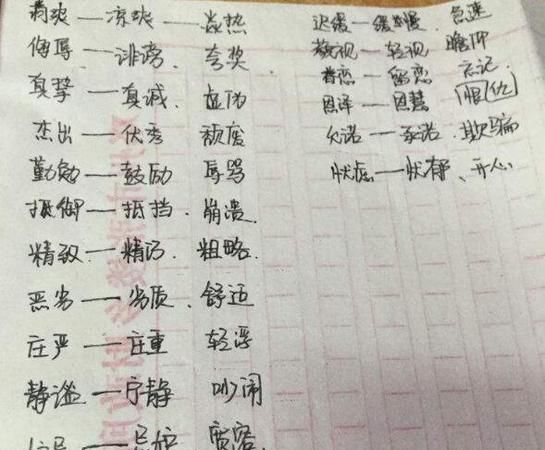 清爽——凉爽——炎热
侮辱——诽谤、夸奖
真挚——真诚、虚伪
杰出——优秀 颓废
勤勉——鼓励 辱骂
抵御——抵挡 崩溃
精致——精巧 粗略
恶劣——劣质、舒适
庄严——庄重 轻浮
静谧——宁静 吵闹
——忌妒 宽容
迟缓——缓慢 急速
藐视——轻视 瞻仰
眷恋——留恋 忘记
恩泽——恩惠
允诺——承诺 欺骗
忧虑——忧郁、开心